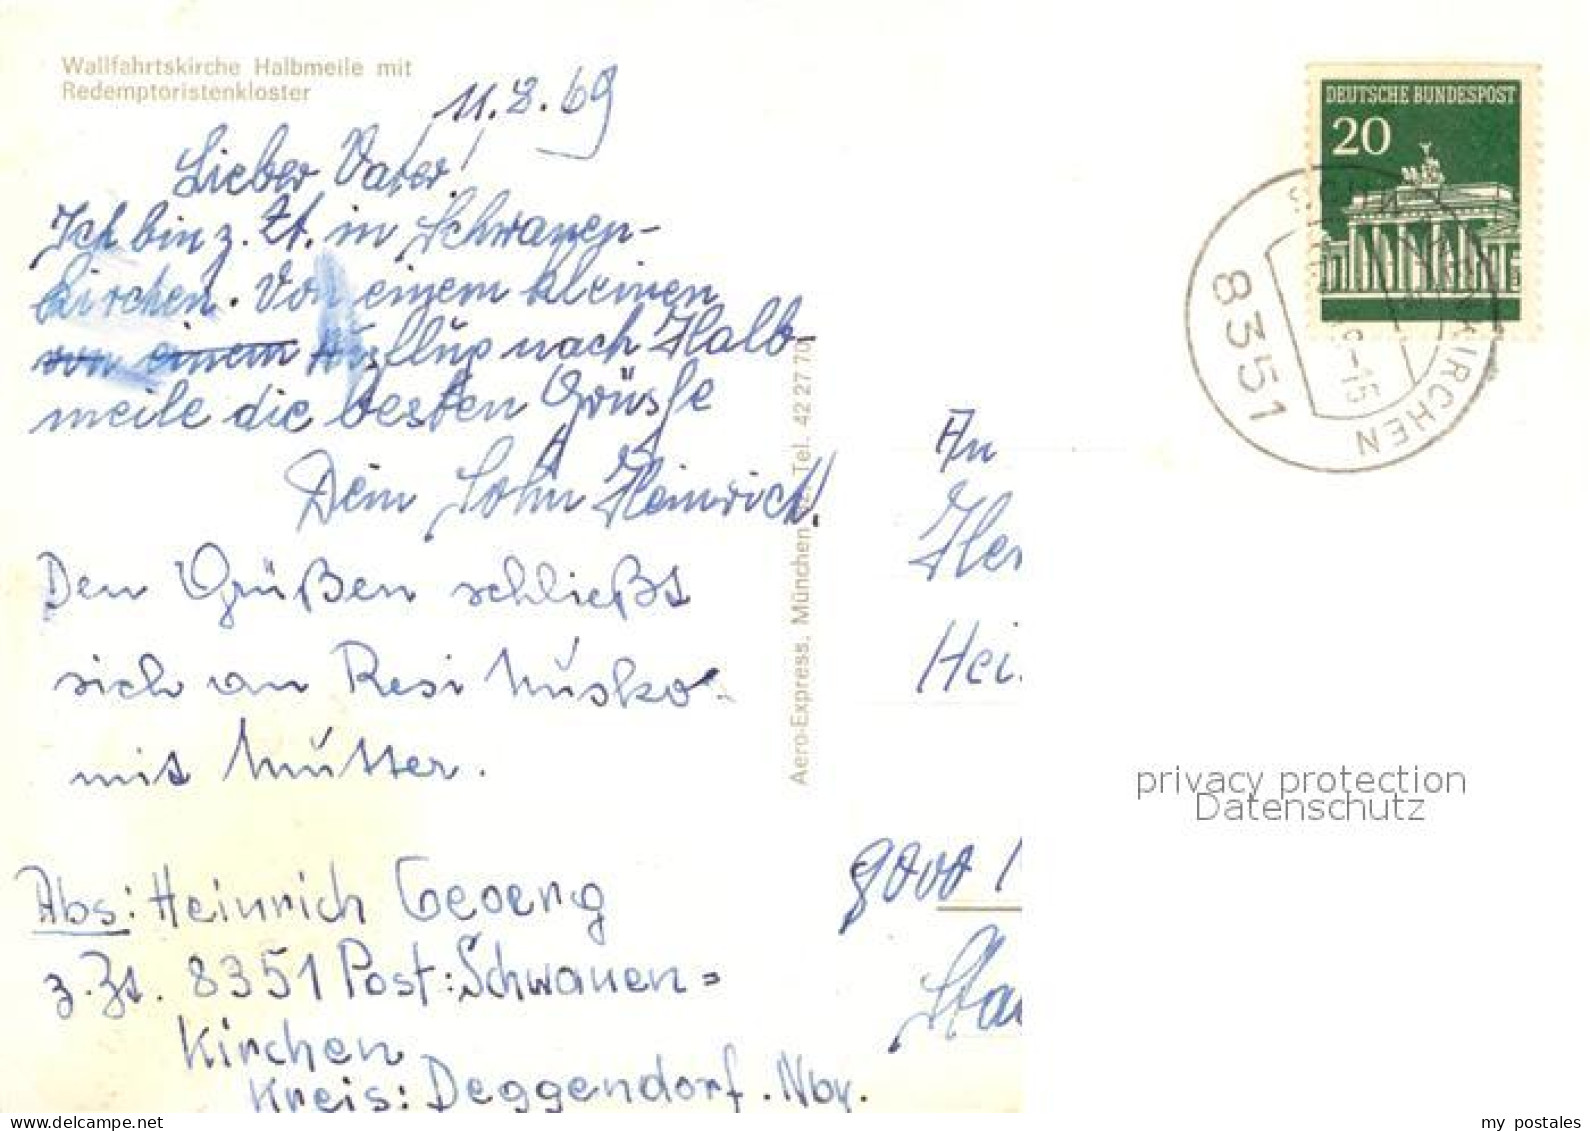 Wallfahrtskirche Halbmeile mit
Redemptoristenkloster
11.8.69
Lieber Vater!
Ich bin z. Zt. in Schwanen-
kirchen. Von einem kleinen
von einem Ausflug nach Halb-
meile die besten Grüsse
Dein Sohn Heinrich!
Den Grüßen schließt
sich an Resi
mit Mutter.
Abs: Heinrich Georg
z.Zt. 8351 Post: Schwanen=
Kirchen
Kreis: Deggendorf. Nby.
Aero-Express. München Tel. 42 27 70
DEUTSCHE BUNDESPOST
20
8351
-15
KIRCHEN
An
Her
Hei
privacy protection
Datenschutz
my postales
www.delcampe.net